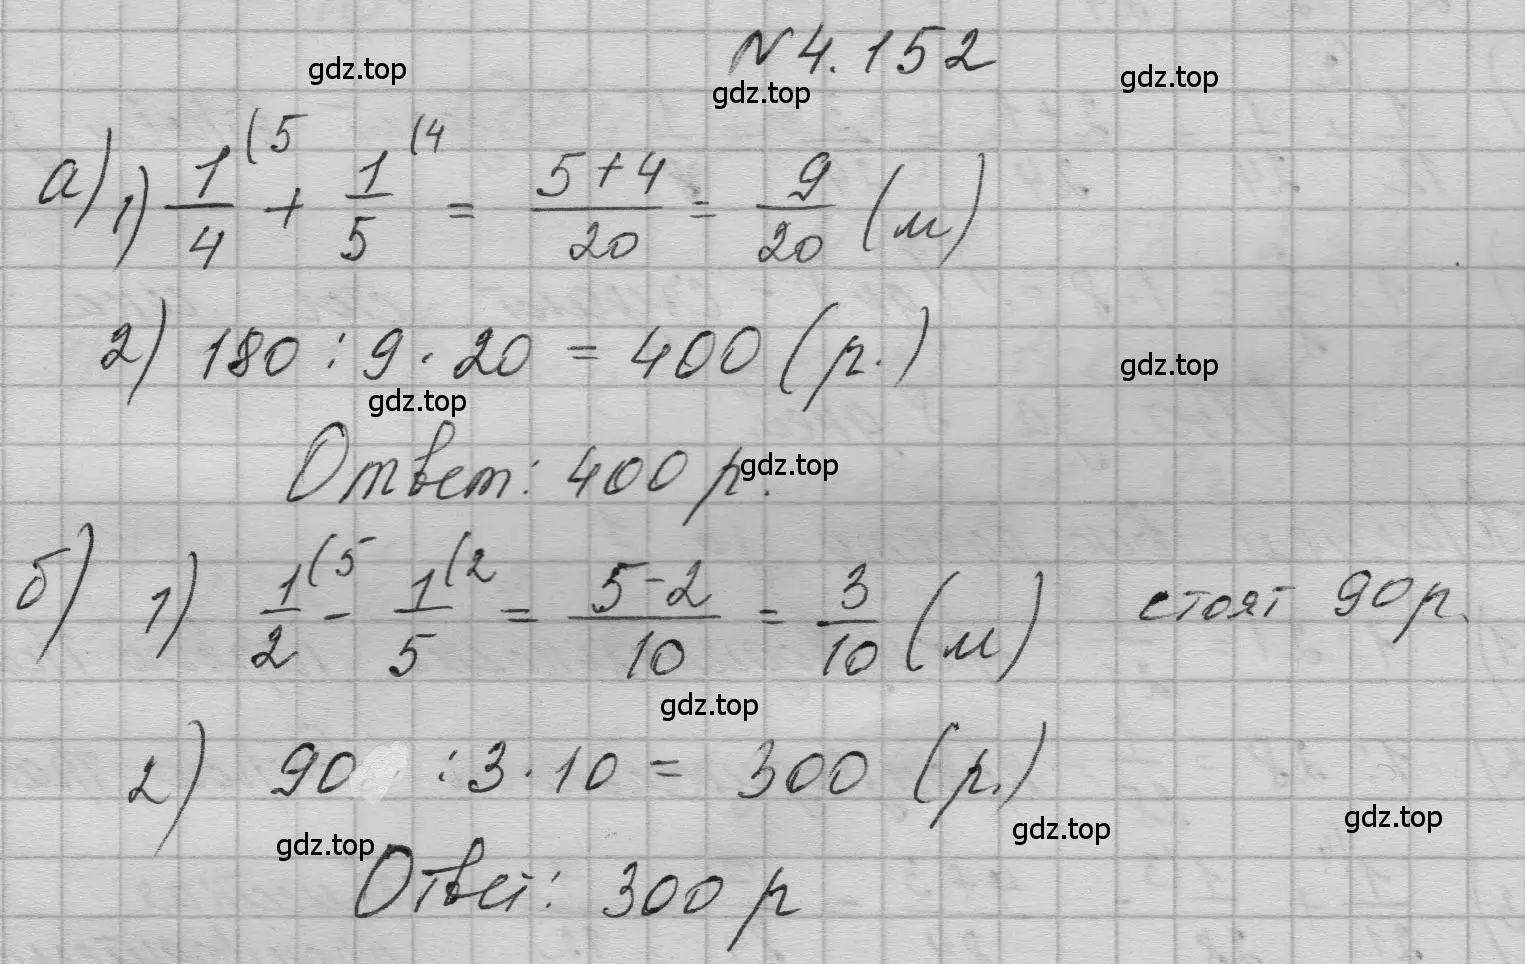 № 4.152
а) 1) 1/4 (5 + 1/5 (4 = 5+4/20 = 9/20 (м)
2) 180 : 9 · 20 = 400 (р.)
Ответ: 400 р.
б) 1) 1/2 (5 - 1/5 (2 = 5-2/10 = 3/10 (м) стоят 90 р.
2) 90 : 3 · 10 = 300 (р.)
Ответ: 300 р
gdz.top
gdz.top
gdz.top
gdz.top
gdz.top
gdz.top
gdz.top
gdz.top
gdz.top
gdz.top